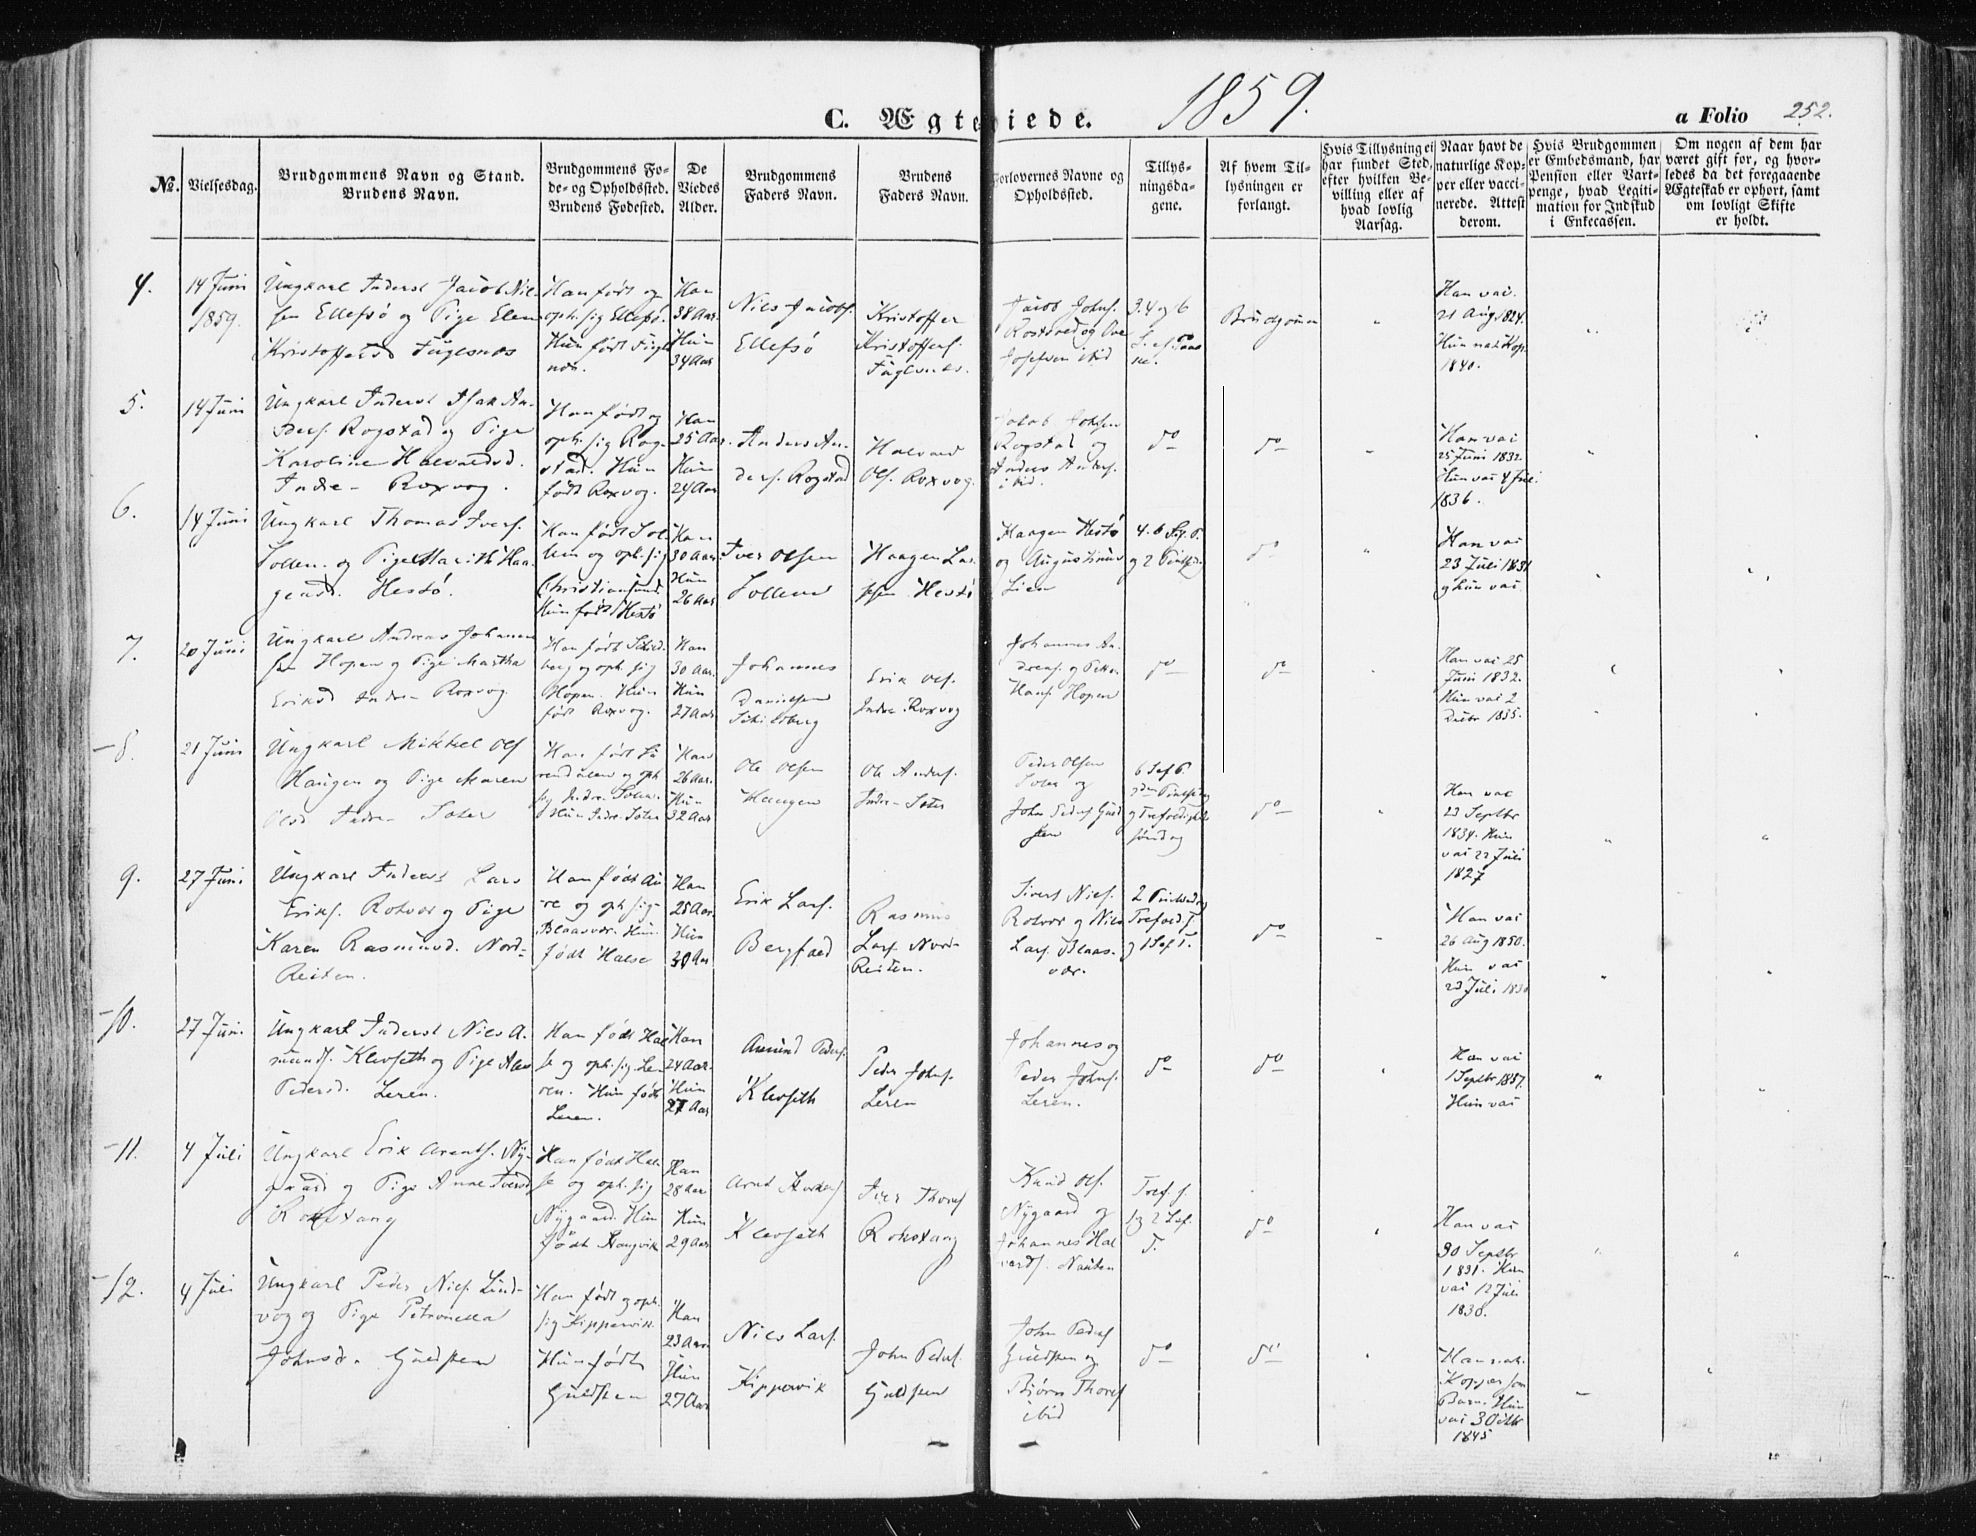 C. Ægteviede.
1859.
a Folio 252.
No.
Vielsesdag.
Brudgommens Navn og Stand.
Brudens Navn.
Brudgommens Fø-
de- og Opholdssted.
Brudens Fødested.
De
Viedes
Alder.
Brudgommens
Faders Navn.
Brudens
Faders Navn.
Forlovernes Navne og
Opholdssted.
Tillys-
ningsda-
gene.
Af hvem Til-
lysningen er
forlangt.
Hvis Tillysning ei
har fundet Sted,
efter hvilken Be-
villing eller af
hvad lovlig
Aarsag.
Naar havt de
naturlige Kop-
per eller vacci-
nerede. Attest
derom.
Hvis Brudgommen
er Embedsmand, har
Pension eller Vart-
penge, hvad Legiti-
mation for Indskud
i Enkecassen.
Om nogen af dem har
været gift før, og hvor-
ledes da det foregaaende
Ægteskab er ophørt, samt
om lovligt Skifte
er holdt.
4.
14 Juni
1859.
Ungkarl Inderst Jacob Niel-
sen Ellefsø og Pige Elen
Kristoffersd Fuglesnes
Han født og
oph. sig Ellefsø.
Hun født Fugle
nes.
Han
38 Aar.
Hun
34 Aar
Nils Jacobs.
Ellefsø
Kristoffer
Kristoffers.
Fuglesnes.
Jacob Johns.
og Ove
Josefsen ibid
3. 4 og 6
S. ef. Paas
ke.
Brudgom
Han vac.
21 Aug. 1824.
Hun nat. Kop.
1840.
5.
14 Juni
Ungkarl Inderst Isak An-
ders. Rogstad og Pige
Karoline Halvardsd.
Indre-Roxvog.
Han født og
oph. sig Rog-
stad. Hun
født Roxvog.
Han
25 Aar.
Hun
24 Aar
Anders An-
ders. Rogstad
Halvard
Ols. Roxvog.
Jakob Johnsen
Rogstad og
Anders Anders.
ibid.
do
do
Han vac
25 Juni 1832.
Hun vac 4 Juli
1836.
6.
14 Juni
Ungkarl Thomas Ivers.
Sollem. og Pige Marith Haa-
gensd. Hestø.
Han født Sol
lem og oph. sig
Christiansund.
Hun født Hestø
Han
30 Aar.
Hun
26 Aar
Iver Olsen
Sollem
Haagen Lar-
sen Hestø
Haagen Hestø
og Augustinus
Lien
do
Han vac
23 Juli 1831
og hun vac
7.
20 Juni
Ungkarl Andreas Johannes
sen Hopen og Pige Martha
Eriksd Indre-Roxvog
Han født Schild-
berg og oph. sig
Hopen. Hun
født Roxvog.
Han
30 Aar.
Hun
27 Aar
Johannes
Danielsen
Schildberg
Erik Ols.
Indre-Roxvog
Johannes An-
dreas. og Peder
Hans. Hopen
do
do
Han vac 25
Juni 1832.
Hun vac 2
Decbr 1835.
8.
21 Juni
Ungkarl Mikkel Ols
Haugen og Pige Maren
Olsd Indre-Soter
Han født Su
rendalen og oph
sig Indre-Soter.
Hun Indre-Soter
Han
26 Aar.
Hun
32 Aar
Ole Olsen
Haugen
Ole Anders.
Indre-Soter
Peder Olsen
Soter og
John Peders Guld
sten
6 S. ef P.
2den Pintsedag
og Trefoldigheds
søndag
do
Han vac
23 Septbr
1834. Hun
vac 22 Juli
1827
9.
27 Juni
Ungkarl Inderst Lars
Eriks. Rotvær og Pige
Karen Rasmusd. Nord-
Reiten.
Han født Au
re og oph. sig
Blaasvær. Hun
født Halse
Han
25 Aar.
Hun
30 Aar
Erik Lars.
Rasmus
Lars. Nord-
Reiten.
Sivert Niels.
Rotvær og Nils
Lars. Blaas-
vær.
2 Pintsedag
Trefold. S.
og 1 S. ef T.
do
Han vac
26 Aug 1850.
Hun vac
23 Juli 1830
10.
27 Juni
Ungkarl Inderst Niels A-
munds. Klevseth og Pige Ales
Pedersd. Leren.
Han født Hal
se og oph. sig Le-
ren. Hun født
Leren.
Han
24 Aar.
Hun
27 Aar
Amund Peders.
Klevseth
Peder Johns.
Leren
Johannes og
Peder Johns.
Leren.
do
do
Han vac
1 Septbr 1857.
Hun vac
11.
4 Juli
Ungkarl Erik Arents. Ny-
gaard og Pige Anne Iversd
Rokstang
Han født Hal-
se og oph. sig
Nygaard. Hun
født Stangvik
Han
28 Aar
Hun
29 Aar
Arnt
Klevseth
Iver Thores
Rokstang
Knud Ols.
Nygaard og
Johannes Hal
vards. Nauten
Tref. S.
1 og 2 S. ef.
T.
do
Han vac
30 Septbr
1831. Hun
vac 12 Juli
1838.
12.
4 Juli
Ungkarl Peder Niels. Lind-
vog og Pige Petronella
Johnsd. Guldsten
Han født og oph.
sig Kippervik.
Hun født
Guldsten
Han
23 Aar.
Hun
27 Aar
Niels Lars.
Kippervik
John Peders.
Guldsten
John Peders
Guldsten og
Bjørn Thores
ibid
do
do
Han nat.
Kopper som
Barn. Hun
vac 3 Octbr
1845